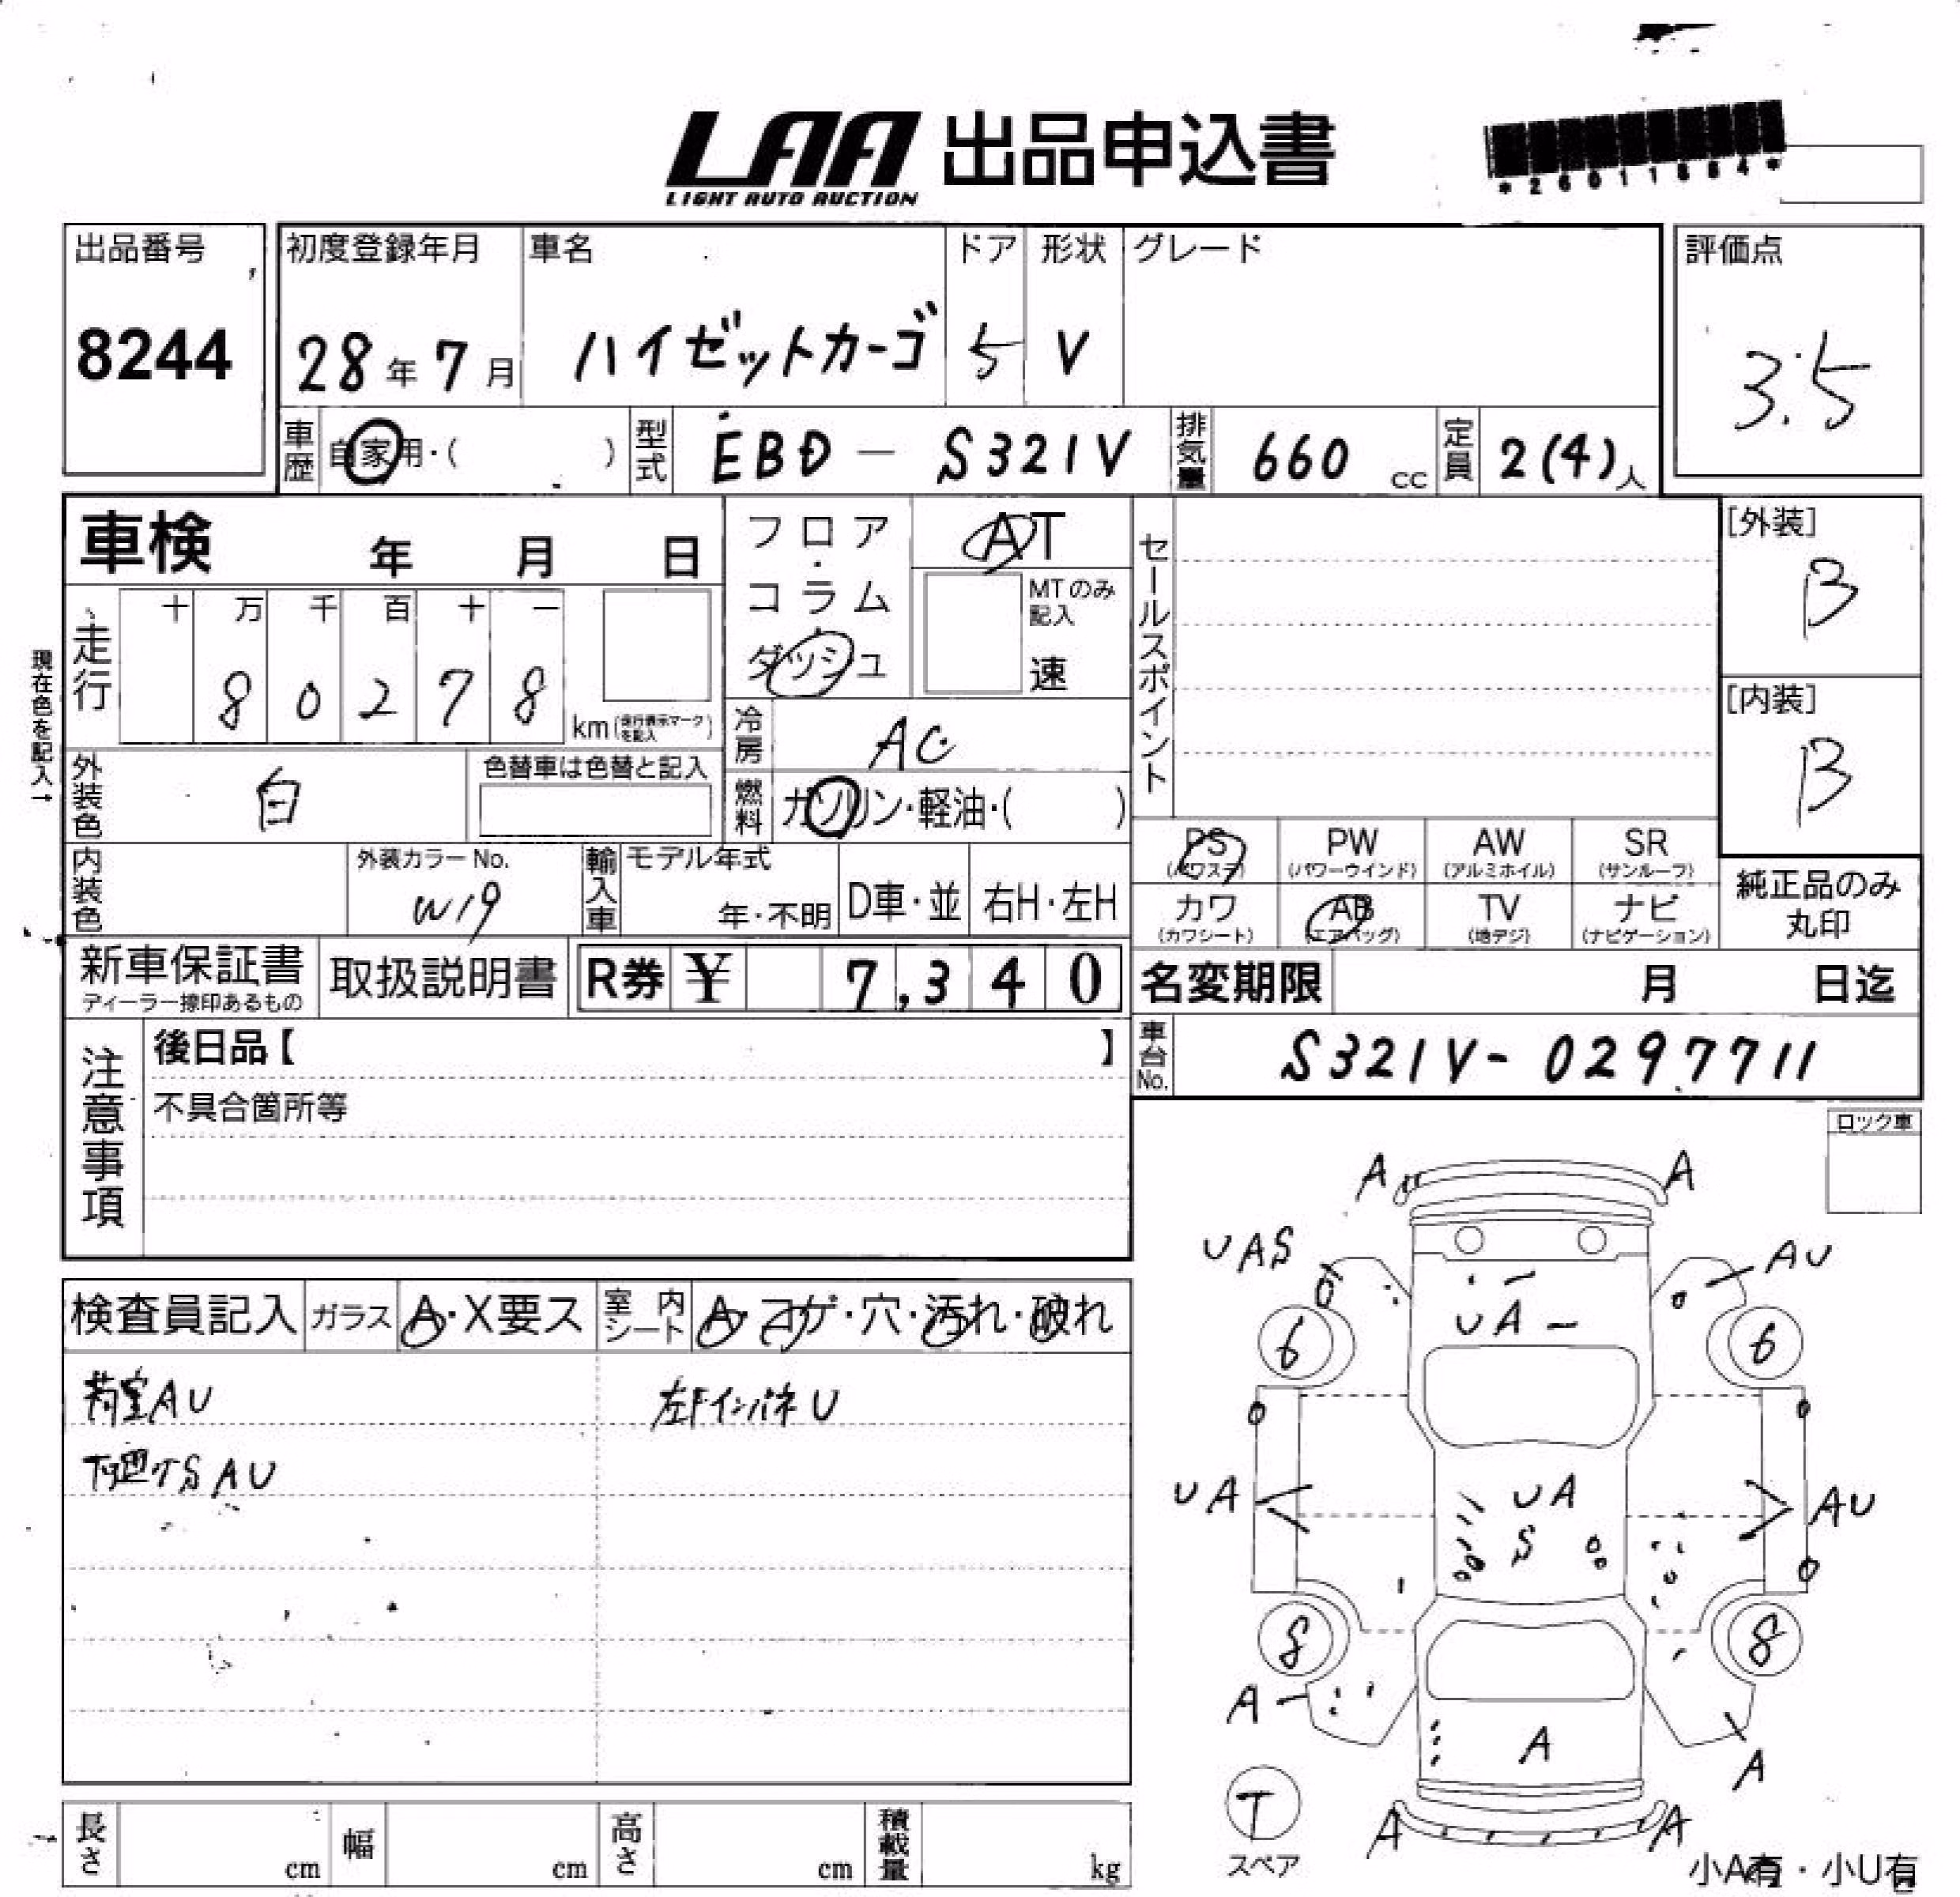 LAA 出品申込書
LIGHT AUTO AUCTION
出品番号
8244
初度登録年月
28年7月
車名
ハイゼットカーゴ
ドア
5
形状
V
グレード
評価点
3.5
車歴
自家用・( )
型式
EBD-S321V
排気量
660 cc
定員
2(4)人
車検 年 月 日
フロア・コラム・ダッシュ
AT
MTのみ記入
速
現在色を記入→
走行
十 万 千 百 十 一
8 0 2 7 8
km
冷房
AC
外装色
白
色替車は色替と記入
燃料
ガソリン・軽油・( )
内装色
外装カラーNo.
W19
輸入車
モデル年式
年・不明
D車・並
右H・左H
セールスポイント
[外装]
B
[内装]
B
PS
(パワステ)
PW
(パワーウインド)
AW
(アルミホイル)
SR
(サンルーフ)
カワ
(カワシート)
AB
(エアバッグ)
TV
(地デジ)
ナビ
(ナビゲーション)
純正品のみ
丸印
新車保証書
取扱説明書
R券 ¥ 7,340
名変期限 月 日迄
車台No.
S321V-0297711
注意事項
後日品【 】
不具合箇所等
ロック車
検査員記入
ガラス
A・X要ス
室内シート
A・コゲ・穴・汚れ・破れ
荷室AU
左ドインパネU
下廻りS AU
A A
UAS AU
UA
6 6
UA UA AU
S
8 8
A A A
T
スペア
A A
小A有・小U有
長さ cm
幅 cm
高さ cm
積載量 kg